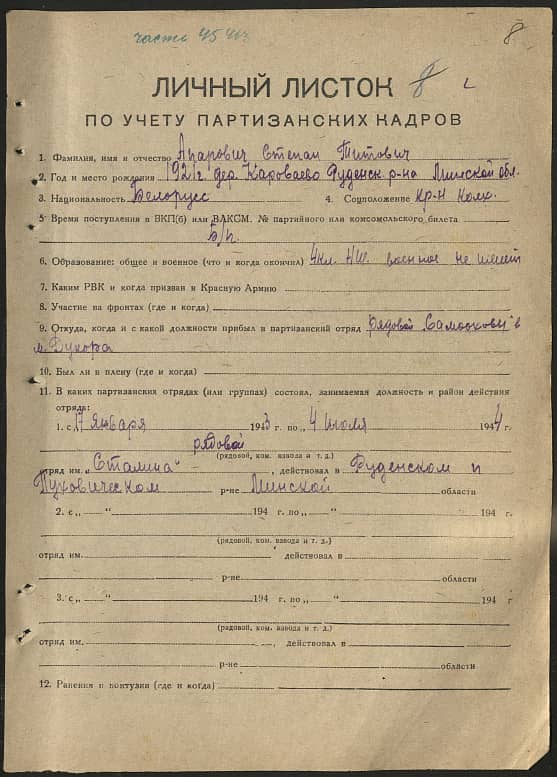 часть 45 ч/з
8
ЛИЧНЫЙ ЛИСТОК
ПО УЧЕТУ ПАРТИЗАНСКИХ КАДРОВ
1. Фамилия, имя и отчество Апарович Степан Титович
2. Год и место рождения 1921 г. дер. Короваево Руденск. р-на Минской обл.
3. Национальность Белорус 4. Соцположение кр-н колх.
5 Время поступления в ВКП(б) или ВЛКСМ. № партийного или комсомольского билета
Б/п.
6. Образование: общее и военное (что и когда окончил) 4 кл. НШ. военное не имеет
7. Каким РВК и когда призван в Красную Армию
8. Участие на фронтах (где и когда)
9. Откуда, когда и с какой должности прибыл в партизанский отряд рядовой Самооховы в
м. Дукора
10. Был ли в плену (где и когда)
11. В каких партизанских отрядах (или группах) состоял, занимаемая должность и район действия
отряда:
1. с „17 января 1943 г. по „4 июля 1944 г.
рядовой
(рядовой, ком. взвода и т. д.)
отряд им. „Сталина“, действовал в Руденском и
Пуховическом р-не Минской области
2. с „ “ 194 г. по „ “ 194 г.
(рядовой, ком. взвода и т. д.)
отряд им. действовал в
р-не области
3. с „ “ 194 г. по „ “ 194 г
(рядовой, ком. взвода и т. д.)
отряд им. , действовал в
р-не области
12. Ранения и контузии (где и когда)